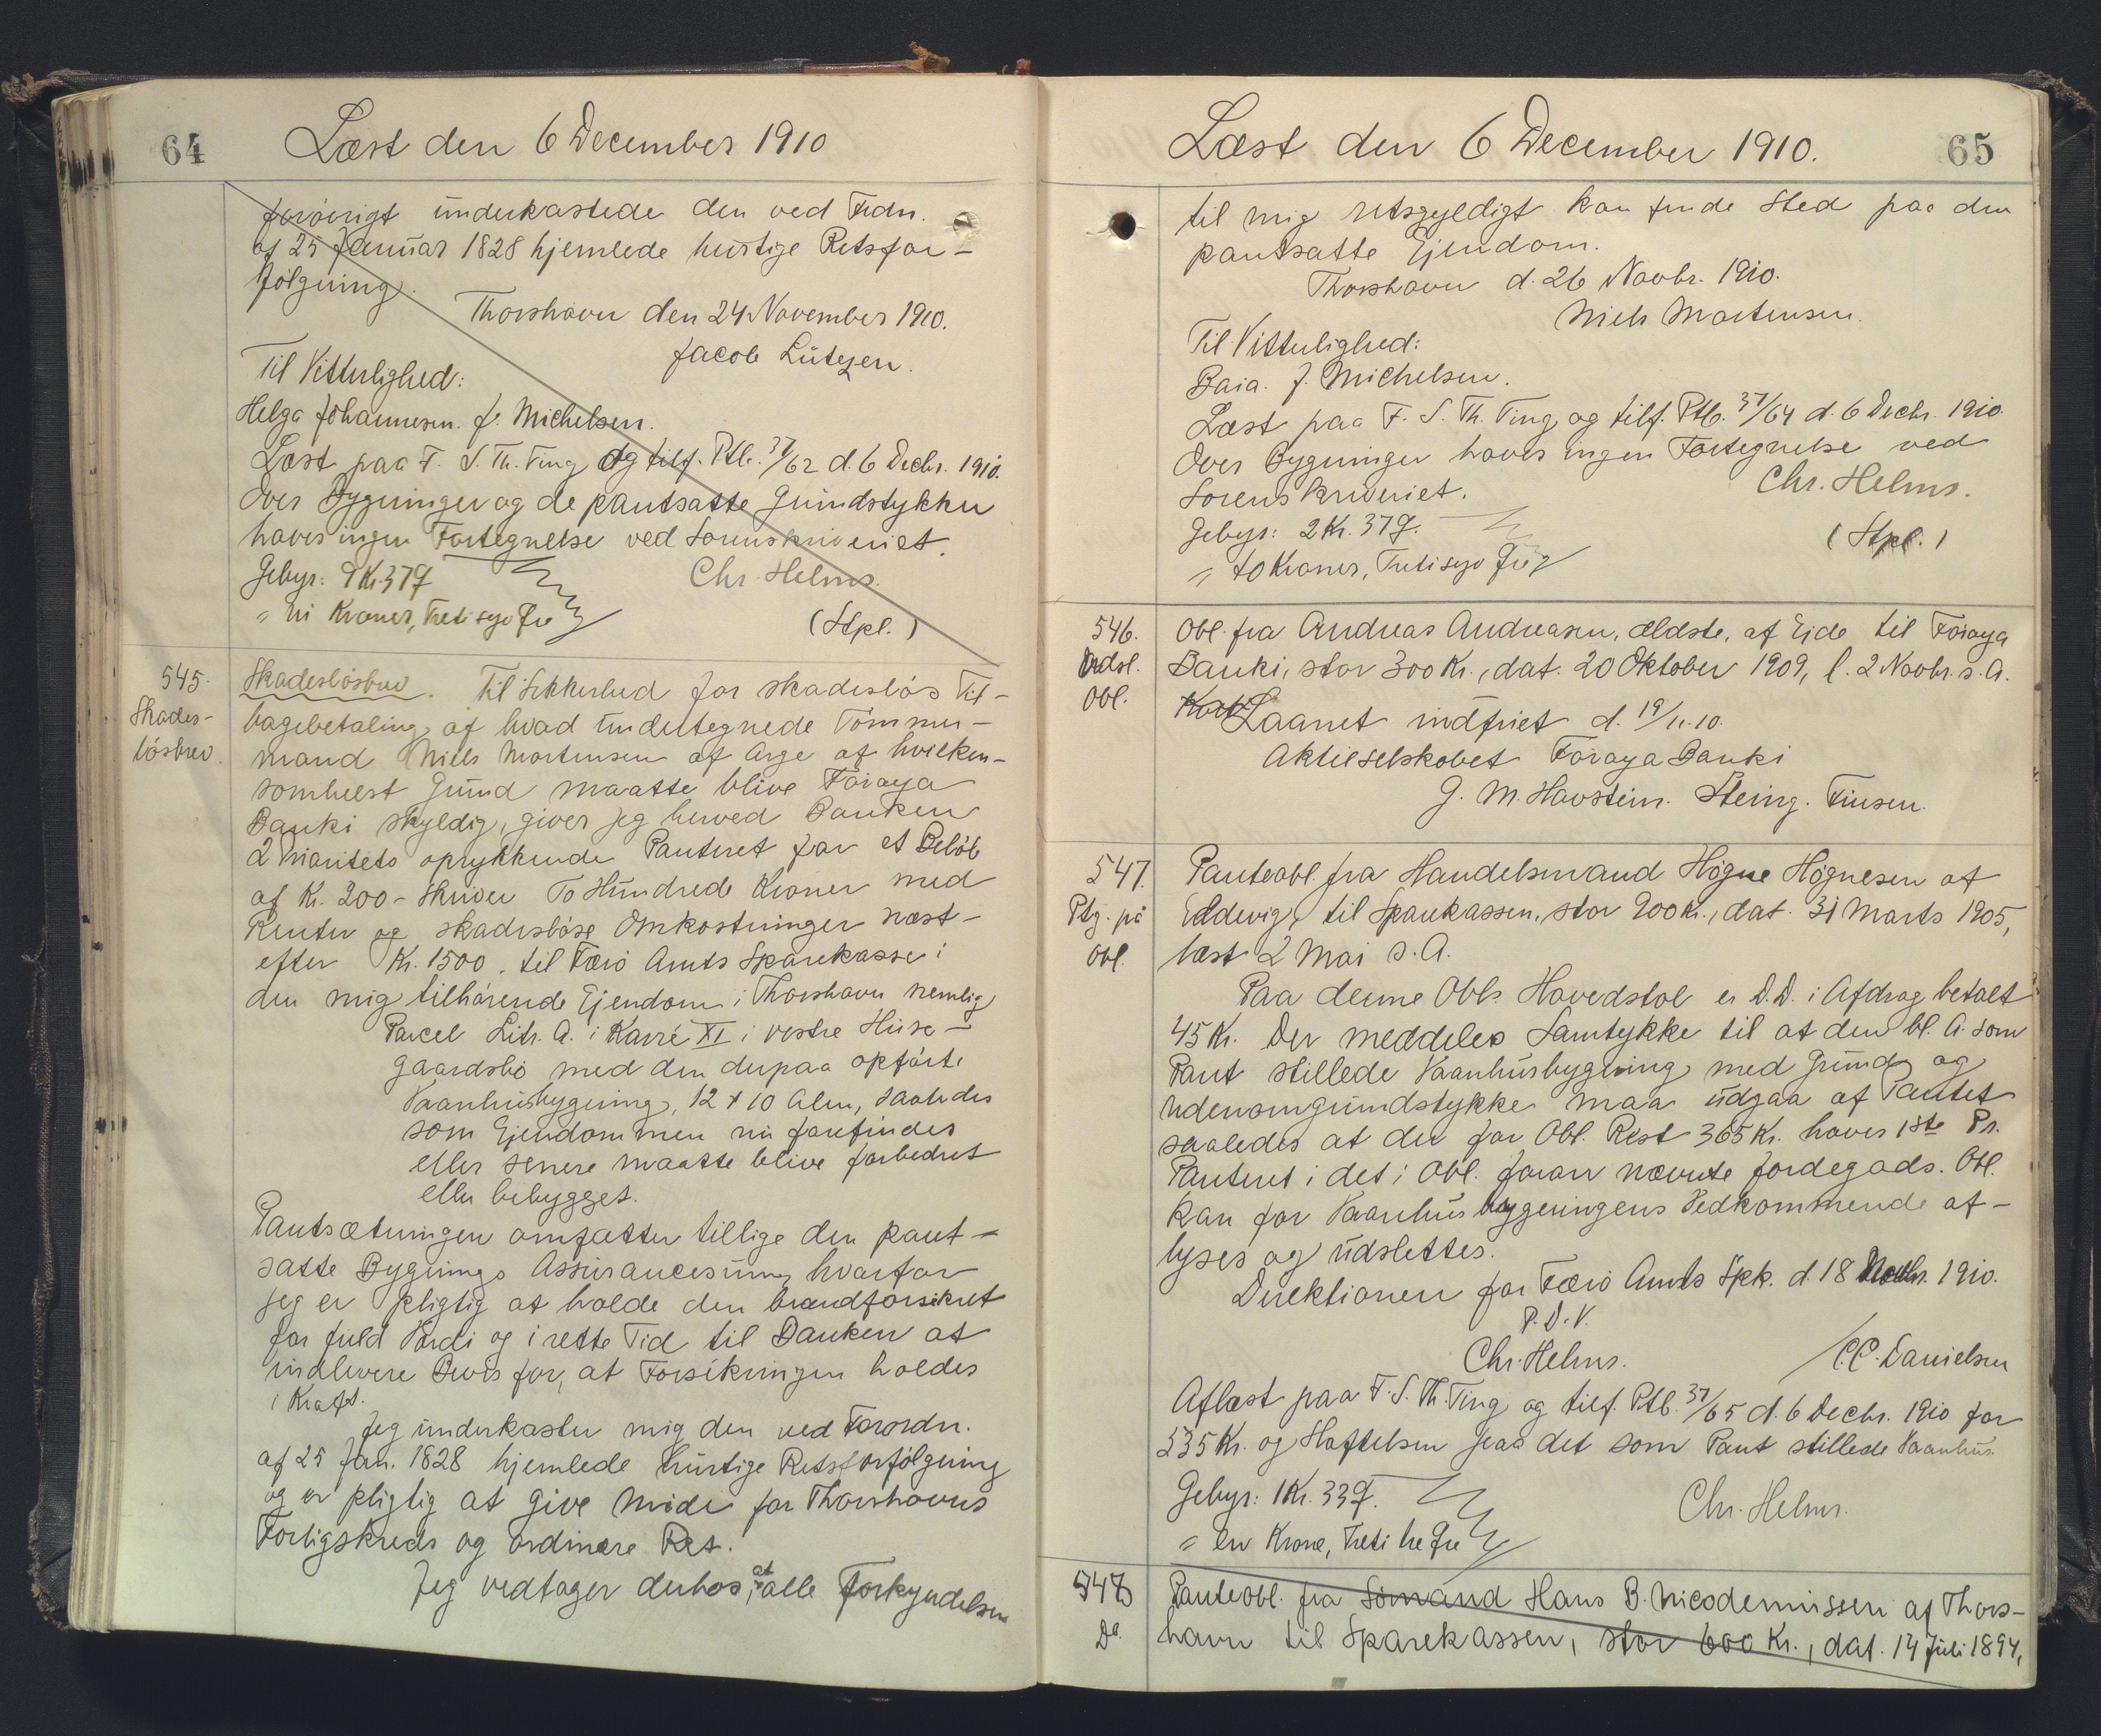 64
Læst den 6 December 1910
forøvrigt underkastede den ved Frdn.
af 25 Januar 1828 hjemlede hurtige Retsfor-
følgning.
Thorshavn den 24 November 1910.
Jacob Lützen.
Til Vitterlighed:
Helga Johannesen. J. Michelsen.
Læst paa F. S. Th. Ting og tilf. Ptb. 37/62 d. 6 Decbr. 1910.
Over Bygninger og de pantsatte Grundstykker
haves ingen Fortegnelse ved Sorenskriveriet.
Gebyr: 9 Kr. 37 Ø
Chr. Helms.
" ni Kroner, Tretisyv Øre
(Stpl.)
545.
Skades-
løsbrev.
Skadesløsbrev. Til Sikkerhed for skadesløs Til-
bagebetaling af hvad undertegnede Tømmer-
mand Niels Mortensen af Arge af hvilken-
somhelst Grund maatte blive Føroya
Banki skyldig, giver jeg herved Banken
2 Prioritets oprykkende Panteret for et Beløb
af Kr. 200 - skriver To Hundrede Kroner med
Renter og skadesløse Omkostninger næst-
efter Kr. 1500. til Færø Amts Sparekasse i
den mig tilhørende Ejendom i Thorshavn nemlig
Parcel Litr. A. i Karré XI i vestre Huse-
gaardsbø med den derpaa opførte
Vaanhusbygning, 12 x 10 Alen, saaledes
som Ejendommen nu forefindes
eller senere maatte blive forbedret
eller bebygget.
Pantsætningen omfatter tillige den pant-
satte Bygnings Assurancesum, hvorfor
jeg er pligtig at holde den brandforsikret
for fuld Værdi og i rette Tid til Banken at
indlevere Bevis for, at Forsikringen holdes
i Kraft.
Jeg underkaster mig den ved Forordn.
af 25 Jan. 1828 hjemlede hurtige Retsforfølgning
og er pligtig at give Møde for Thorshavns
Forligskreds og ordinære Ret.
Jeg vedtager derhos, at alle Forkyndelser
Læst den 6 December 1910.
65
til mig retsgyldigt kan finde Sted paa den
pantsatte Ejendom.
Thorshavn d. 26 Novbr. 1910.
Niels Mortensen.
Til Vitterlighed:
Baia. J. Michelsen.
Læst paa F. S. Th. Ting og tilf. Ptb. 37/64 d. 6 Decbr. 1910.
Over Bygninger haves ingen Fortegnelse ved
Sorenskriveriet.
Chr. Helms.
Gebyr: 2 Kr. 37 Ø.
(Stpl.)
" to Kroner, Tretisyv Øre
546.
Udsl.
Obl.
Obl. fra Andreas Andreasen, ældste, af Eide til Føroya
Banki, stor 300 Kr., dat. 20 Oktober 1909, l. 2 Novbr. s. A.
Laanet indfriet d. 19/11.10.
Aktieselskabet Føroya Banki
J. M. Havstein. Steing. Finsen.
547.
Ptg. på
Obl.
Panteobl. fra Handelsmand Høgne Høgnesen af
Eldevig, til Sparekassen, stor 900 Kr., dat. 31 Marts 1905,
læst 2 Mai s. A.
Paa denne Obls Hovedstol er D. D. i Afdrag betalt
45 Kr. Der meddeles Samtykke til at den bl. A. som
Pant stillede Vaanhusbygning med Grund og
Udenomgrundstykke maa udgaa af Pantet
saaledes at der for Obl. Rest 365 Kr. haves 1ste Pr.
Panteret i det i Obl. foran nævnte Jordegods. Obl.
kan for Vaanhusbyggeningens Vedkommende af-
lyses og udslettes.
Direktionen for Færø Amts Spk. d. 18 Novbr. 1910.
P. D. V.
Chr. Helms.
/C. C. Danielsen
Aflæst paa F. S. Th. Ting og tilf. Ptb. 37/65 d. 6 Decbr. 1910 for
535 Kr. og Haftelsen paa det som Pant stillede Vaanhus.
Gebyr: 1 Kr. 33 Ø.
Chr. Helms.
" en Krone, Treti tre Øre
548
Do
Panteobl. fra Sømand Hans B. Nicodemussen af Thors-
havn til Sparekassen, stor 600 Kr., dat. 14 Juli 1894,